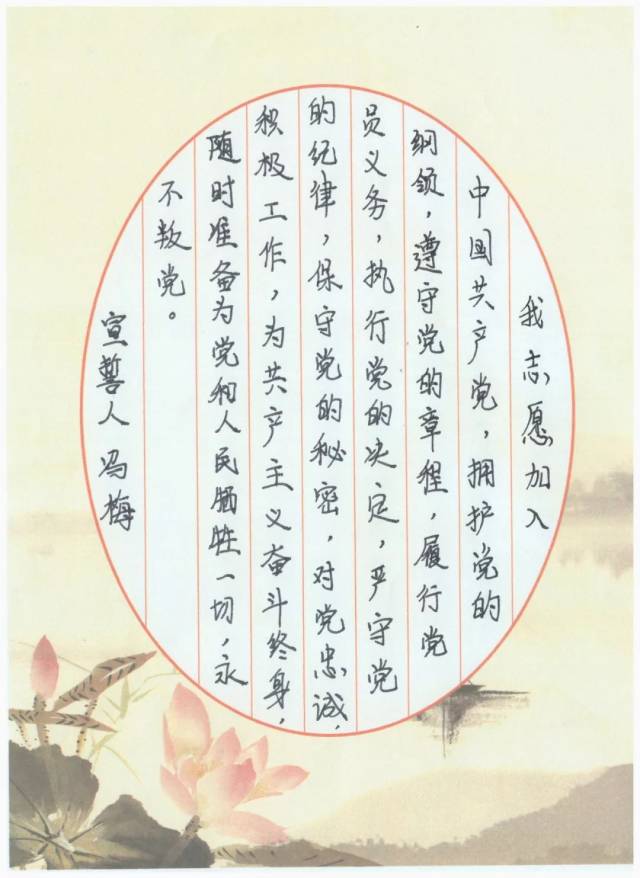 我志愿加入
中国共产党，拥护党的
纲领，遵守党的章程，履行党
员义务，执行党的决定，严守党
的纪律，保守党的秘密，对党忠诚，
积极工作，为共产主义奋斗终身，
随时准备为党和人民牺牲一切，永
不叛党。
宣誓人冯梅